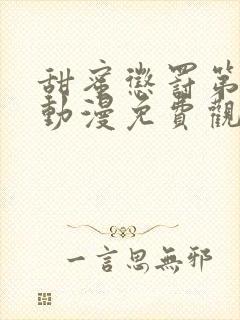 甜蜜懲罰第
動漫免費觀
一言思無邪